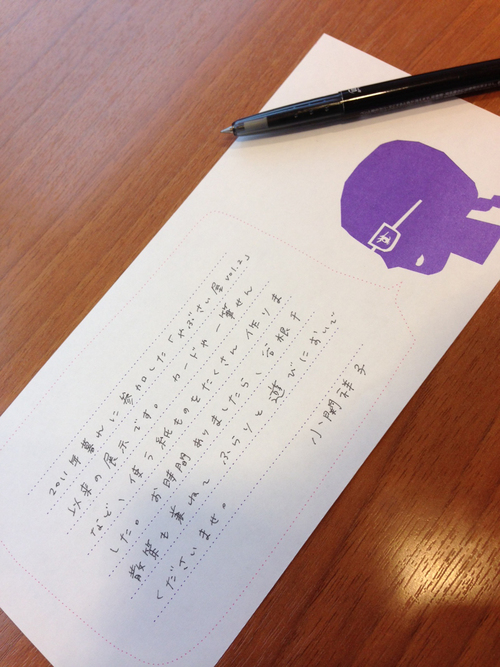 2011年暮れに参加した「やぶさい展 vol.2」
以来の展示です。カードや一筆せん
など、使う紙ものをたくさん作りま
した。お時間ありましたら、谷根千
散策も兼ねて ふらりと遊びにおいで
くださいませ。
小関祥子